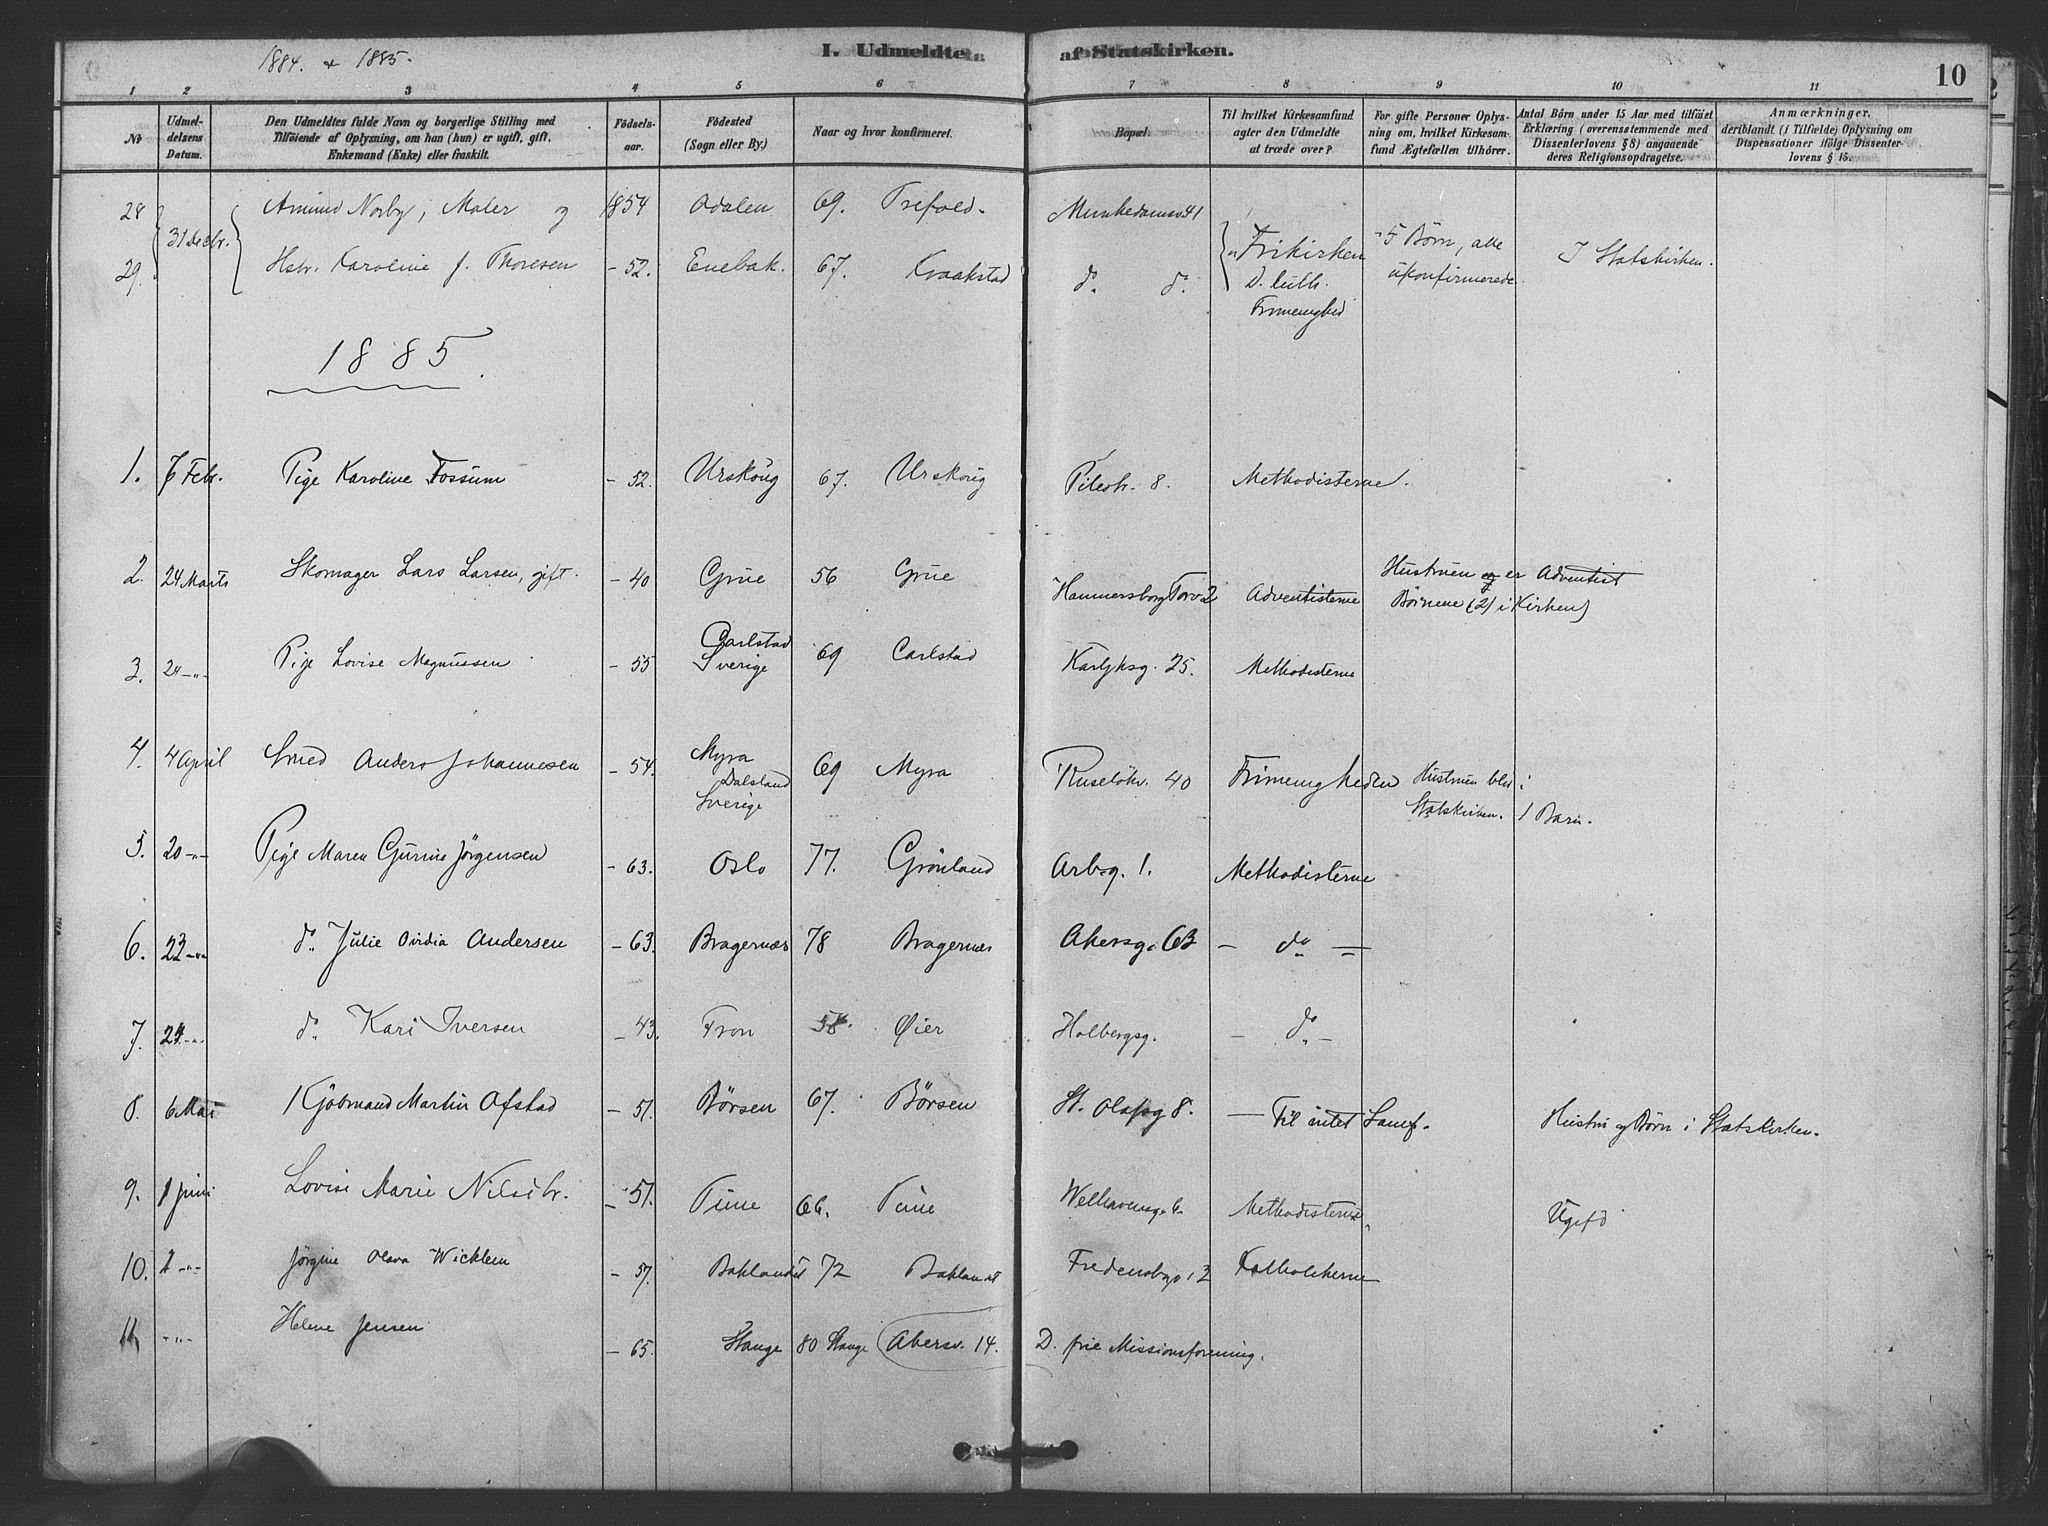 1884. & 1885.
I. Udmeldte af Statskirken.
10
1 2 3 4 5 6 7 8 9 10 11
No
Udmeldelsens Datum.
Den Udmeldtes fulde Navn og borgerlige Stilling med
Tilföiende af Oplysning, om han (hun) er ugift, gift,
Enkemand (Enke) eller fraskilt.
Födselsaar.
Födested
(Sogn eller By.)
Naar og hvor konfirmeret.
Bopæl.
Til hvilket Kirkesamfund
agter den Udmeldte
at træde over?
For gifte Personer Oplysning
om, hvilket Kirkesamfund
Ægtefællen tilhörer.
Antal Börn under 15 Aar med tilföiet
Erklæring (overensstemmende med
Dissenterlovens § 8) angaaende
deres Religionsopdragelse.
Anmærkninger,
deriblandt (i Tilfælde) Oplysning om
Dispensationer ifölge Dissenterlovens
§ 15.
28 31 Decbr. Amund Norby, Maler og 1854 Odalen 69. Trefold. Munkedamsv. 41 Frikirken 5 Børn, alle I Statskirken.
29. Hstr. Karoline f. Thoresen - 52. Enebak. 67. Kraakstad do. do. D. luth. ukonfirmerede
Frimenighed
1885.
1. 7 Febr. Pige Karoline Fossum - 52. Urskoug 67. Urskoug Pilestr. 8. Methodisterne.
2. 24 Marts Skomager Lars Larsen, gift. - 40 Grue 56 Grue Hammersborg Torv 2 Adventisterne Hustruen er Adventist
Børnene (2) i Kirken)
3. 24 -"- Pige Lovise Magnussen - 55 Carlstad Sverige 69 Carlstad 25. Methodisterne
4. 4 April Smed Anders Johannesen - 54. Myra Dalsland Sverige 69 Myra Ruseløkv. 40 Frimenigheden Hustruen blir i
Statskirken. 1 Barn.
5. 20 -"- Pige Maren Gurine Jørgensen - 63. Oslo 77. Grønland Arbg. 1. Methodisterne
6. 22 -"- do. Julie Andersen - 63. Bragernæs 78 Bragernæs Akersg. 63 - do -
7. 24 -"- do. Kari Iversen - 43. Fron 58. Øier Holbergsg. - do -
8. 6 Mai Kjøbmand Martin Ofstad - 51. Børsen 67. Børsen St. Olafsg 8. - Til intet Samf. Hustru og Børn i Statskirken.
9. 1 Juni Lovise Marie Nilsdtr. - 51. Tune 66. Tune Welhavensg. 6. Methodisterne Ugift
10. 1 -"- Jørgine Olava Wicklem - 57. Baklandet 72 Baklandet Fredensbgv. 2 Katholikerne
11. -"- Helene Jensen - 65. Stange 80 Stange Akersv. 14. D. frie Missionsforening.